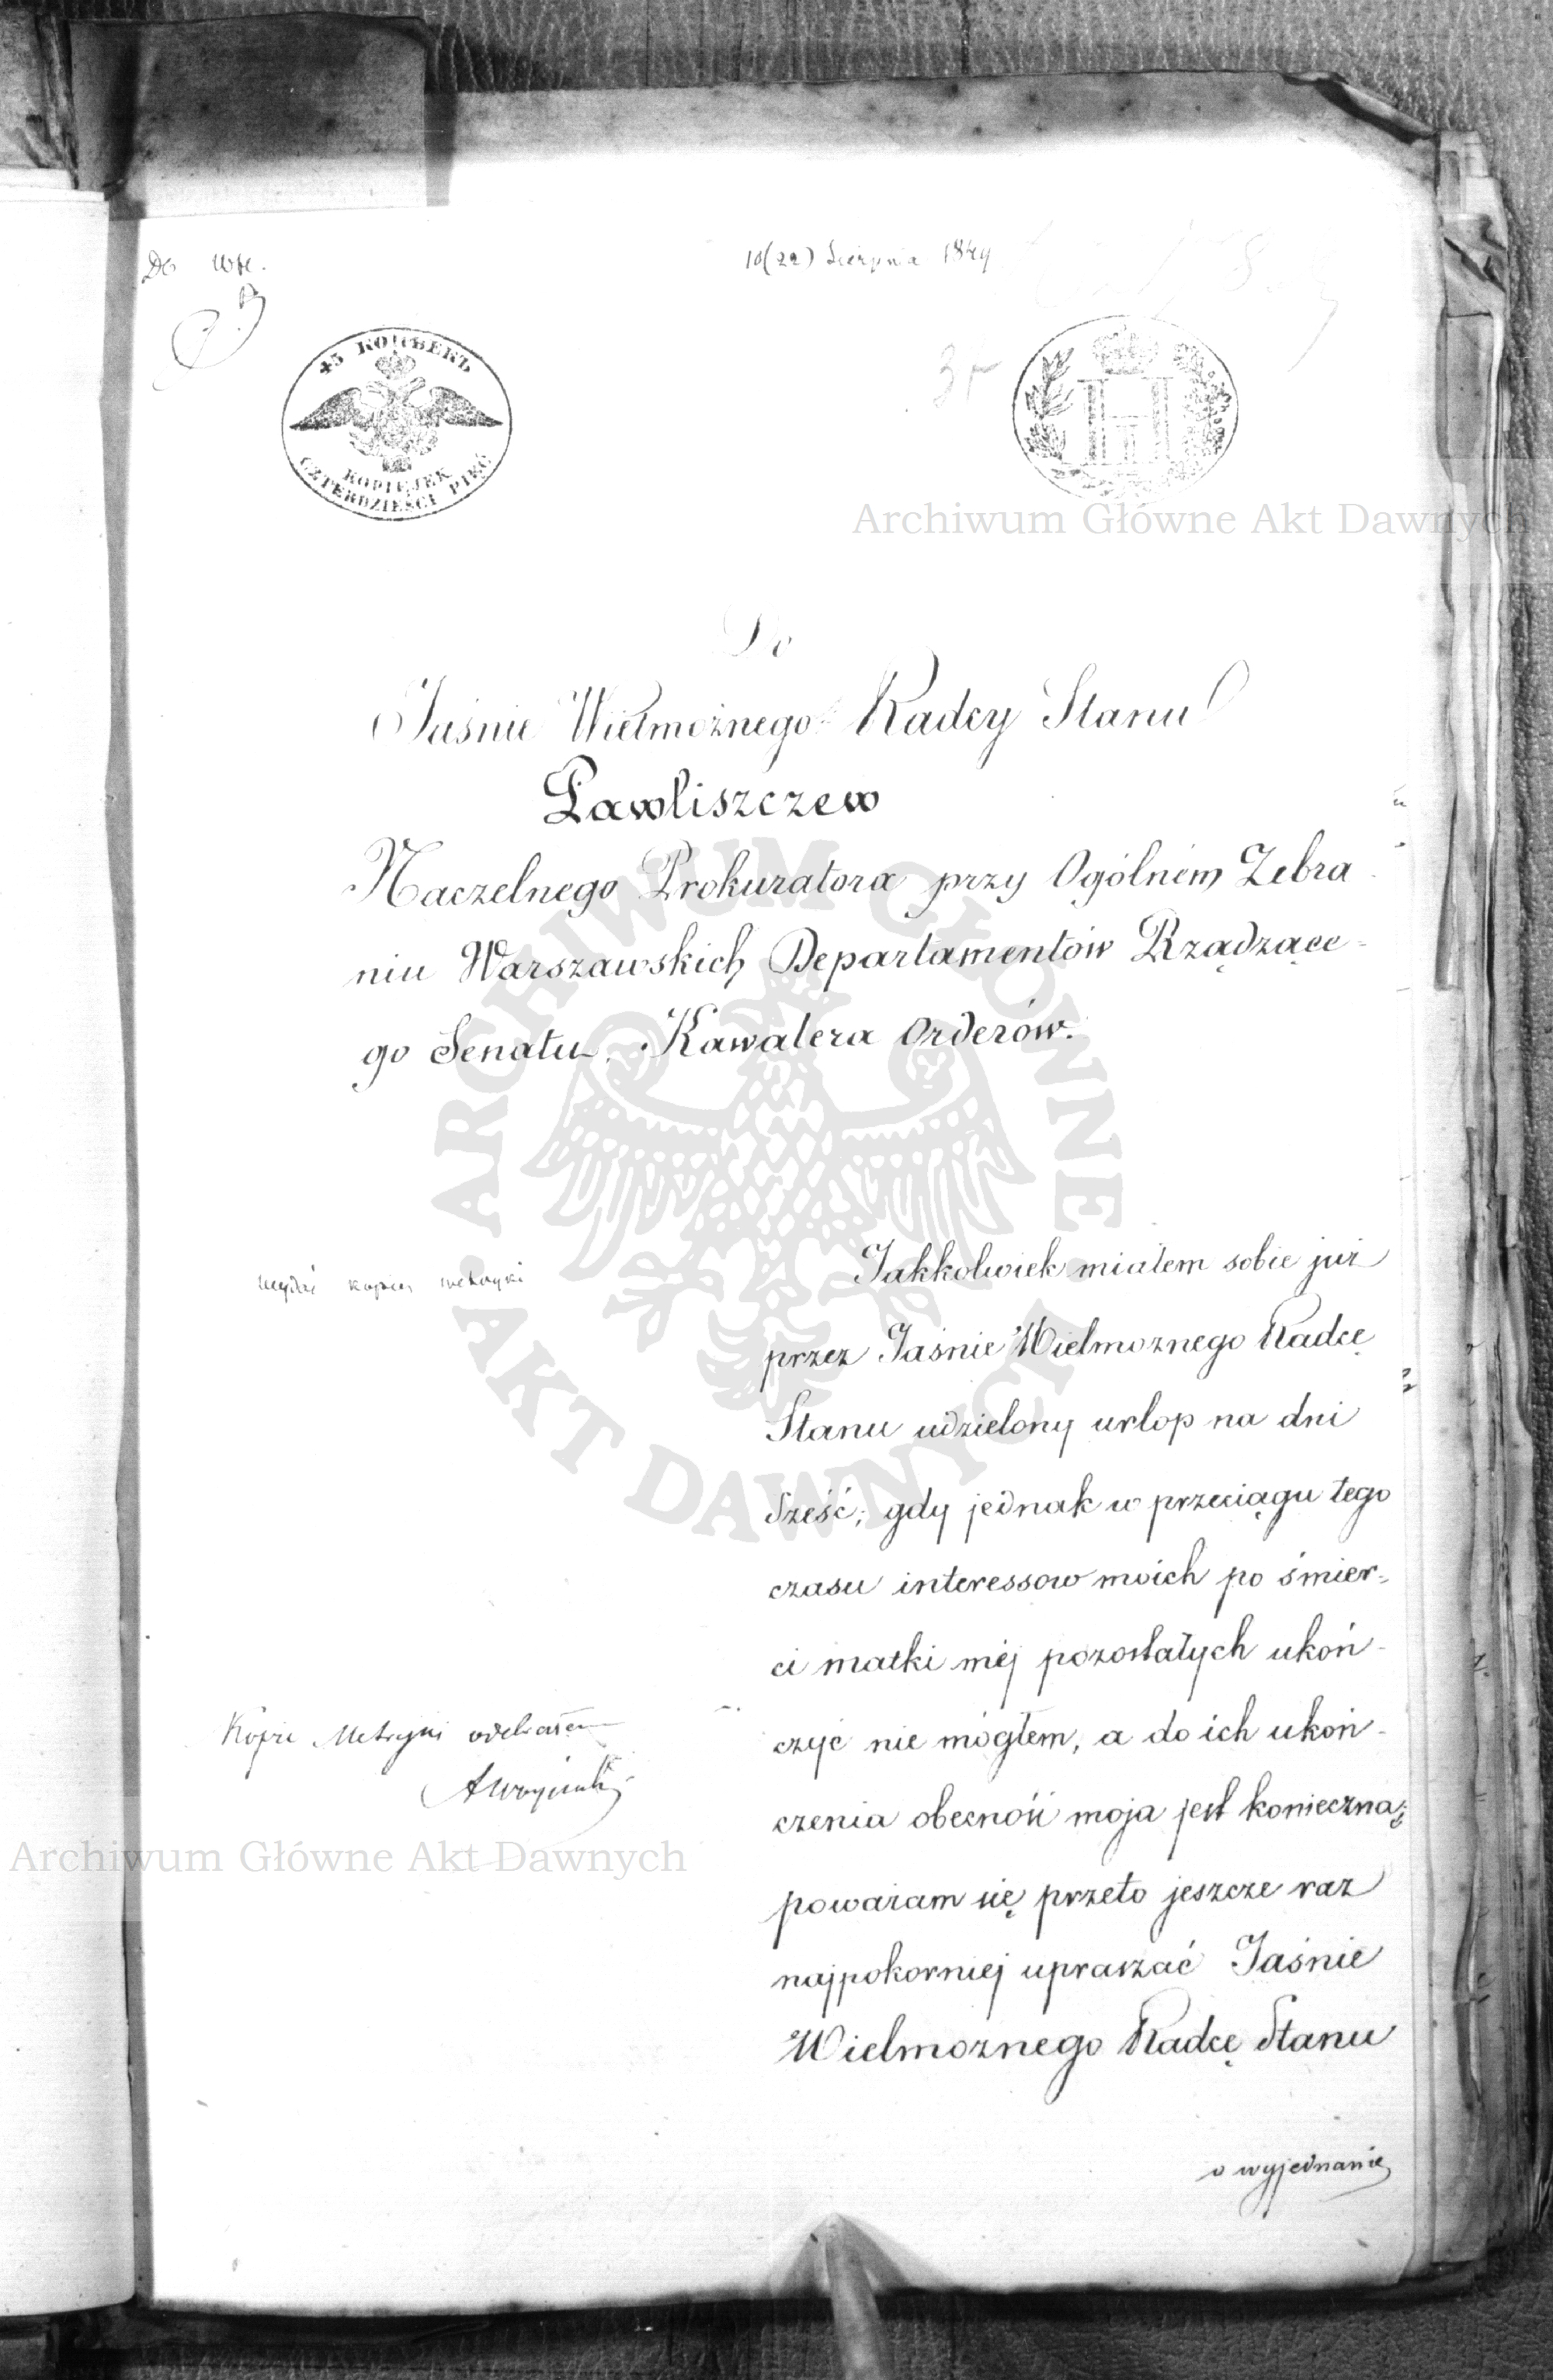 Do
10(22) Sierpnia 1849
45 КОПѢЕКЪ
KOPIEJEK
CZTERDZIEŚCI PIĘĆ
Archiwum Główne Akt Dawnych
Do
Jaśnie Wielmożnego Radcy Stanu
Pawliszczew
Naczelnego Prokuratora przy Ogólném Zebra
niu Warszawskich Departamentów Rządzące=
go Senatu, Kawalera Orderów.
ARCHIWUM GŁÓWNE
AKT DAWNYCH
Jakkolwiek miałem sobie już
przez Jaśnie Wielmożnego Radcę
Stanu udzielony urlop na dni
sześć; gdy jednak w przeciągu tego
czasu interessow moich po śmier=
ci matki méj pozostałych ukoń-
czyć nie mógłem, a do ich ukoń-
czenia obecność moja jest konieczną;
poważam się przeto jeszcze raz
najpokorniej upraszać Jaśnie
Wielmożnego Radcę Stanu
o wyjednanie
wydać kopią metryki
Kopię Metryki odebrałem
Archiwum Główne Akt Dawnych